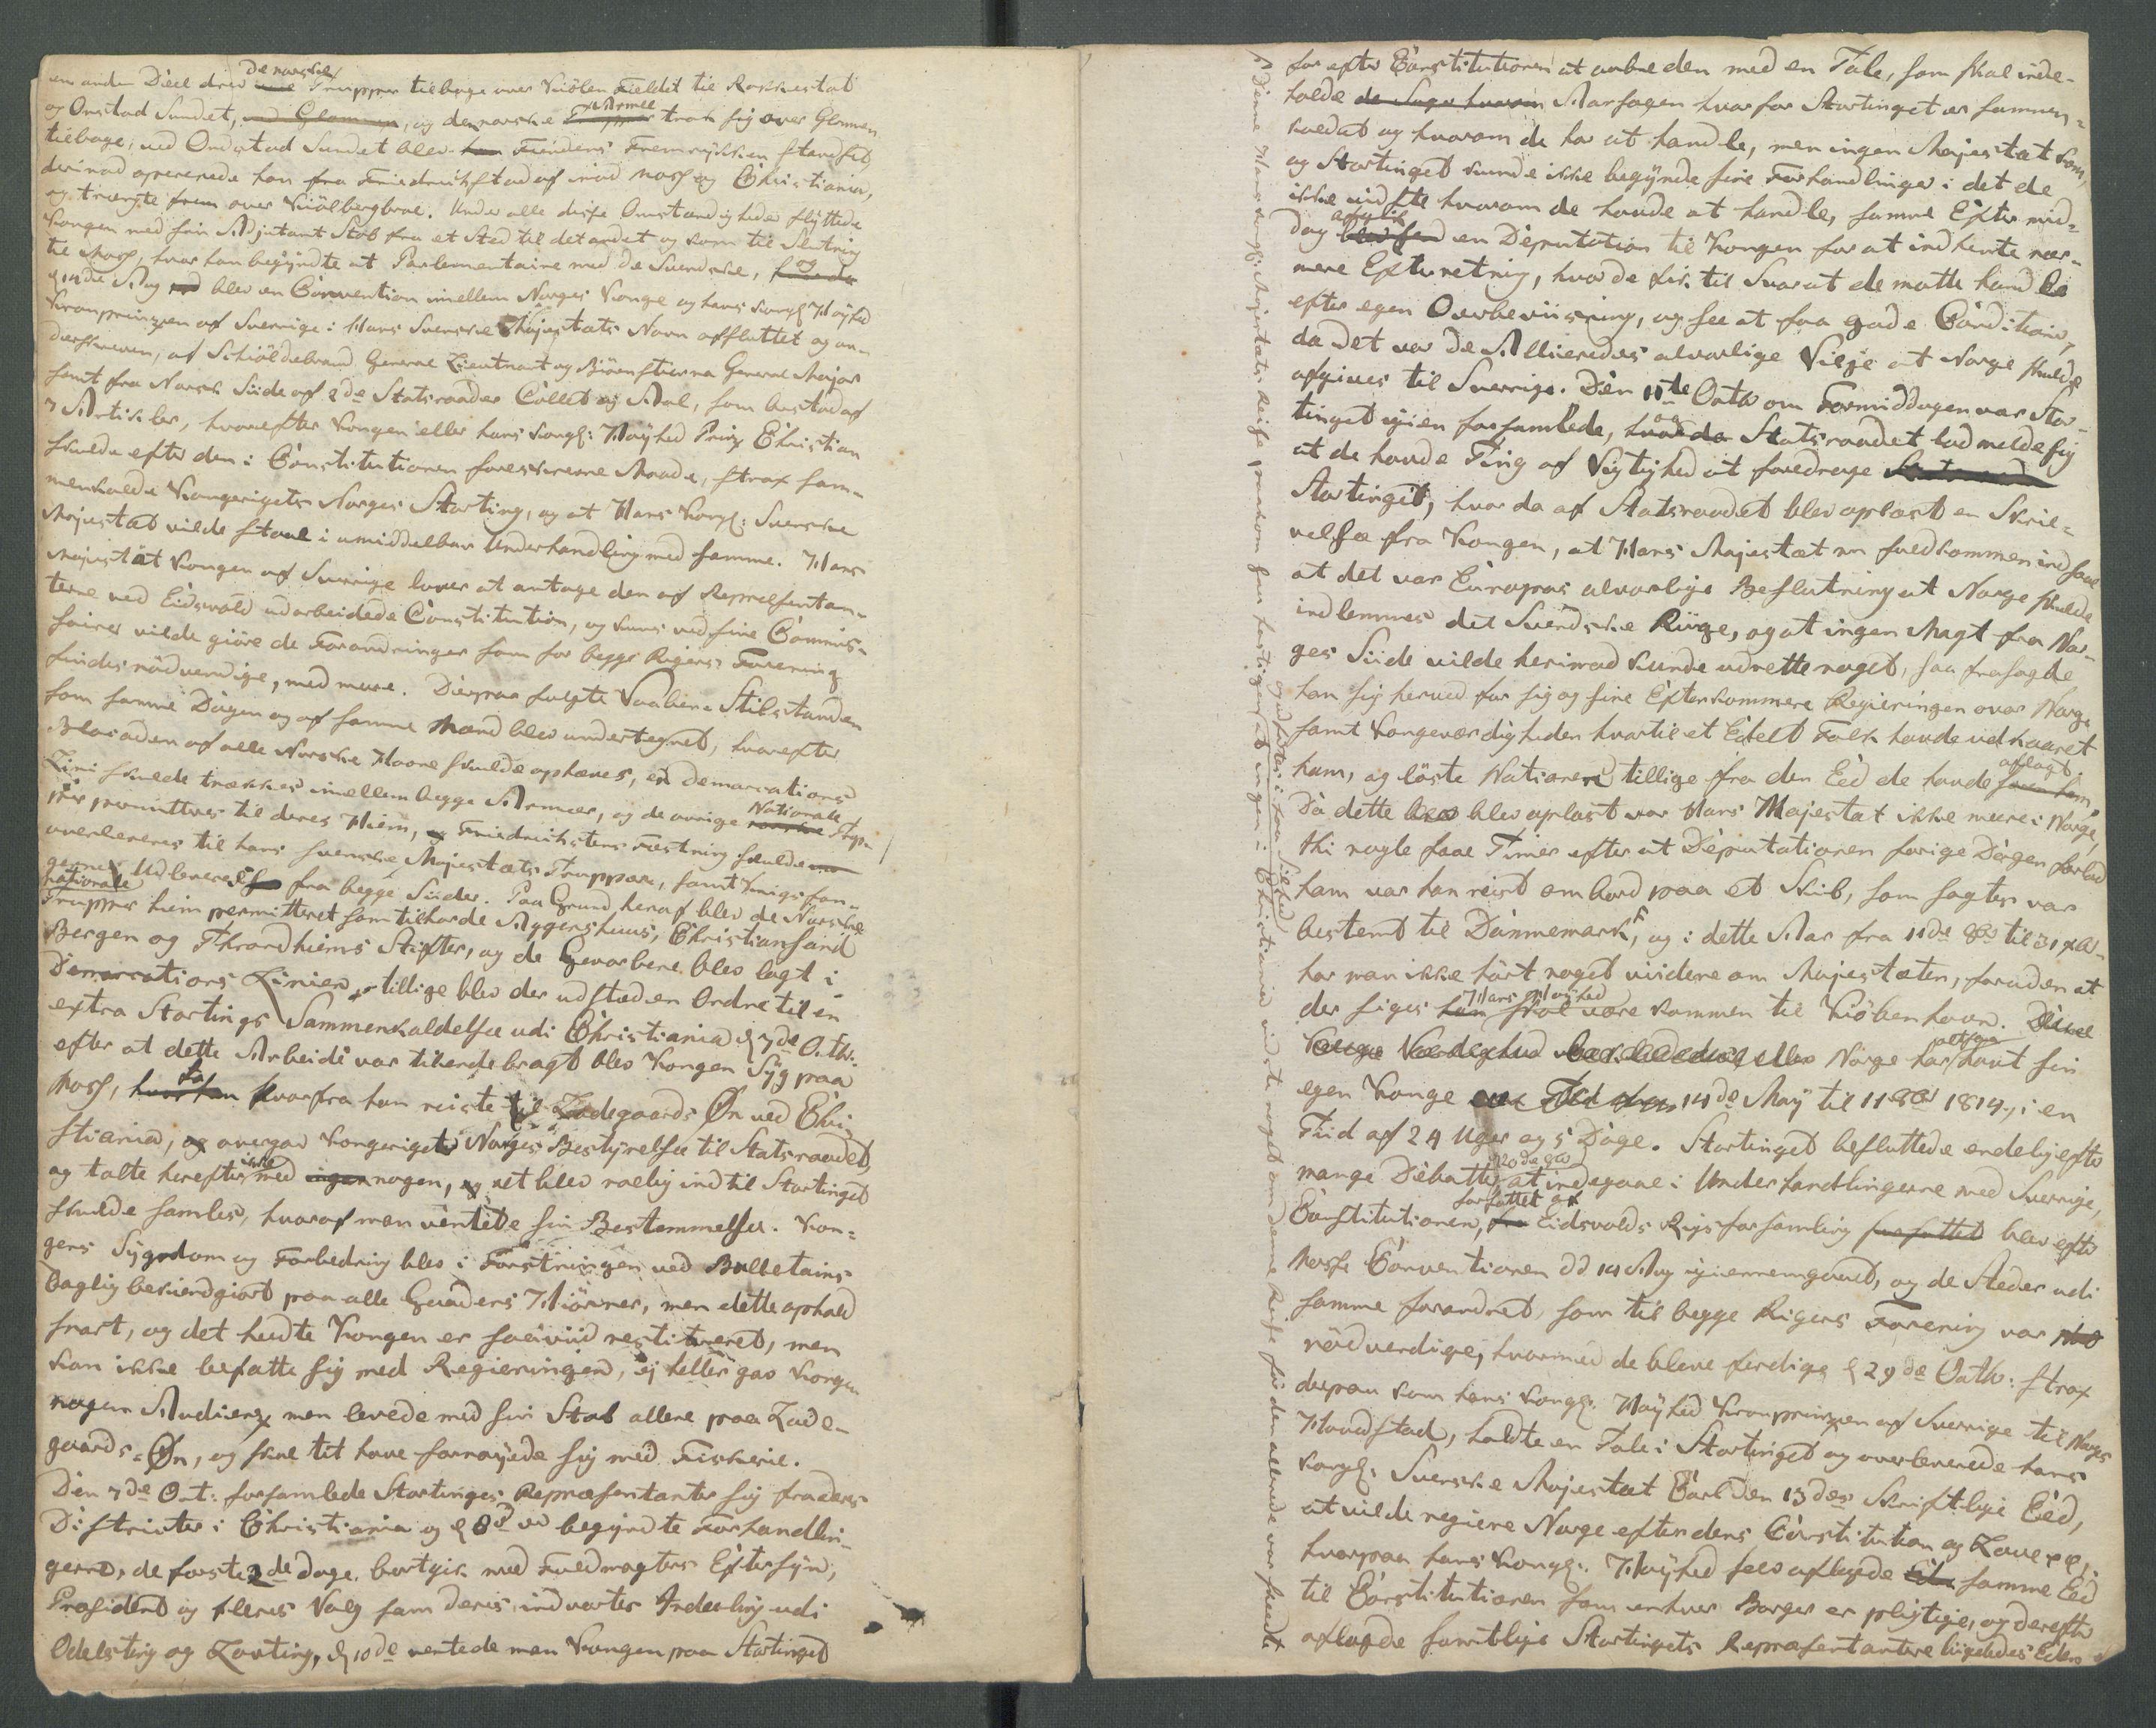 en anden Deel drev de norske Trupper tilbage over Kiölen Fieldet til Rakkestad
og Onstad Sundet, og den norske Armee trak sig over Glommen
tilbage, ved Onstad Sundet blev Fiendens Fremrykken standset,
derimod opererede han fra Friedrichstad af imod Moss og Christiania,
og trængte frem over Kiölbergbroe. Under alle disse Omstændigheder flyttede
Kongen med sin Adjutant Stab fra et Sted til det andet og kom til Slutning
til Moss, hvor han begyndte at Parlementaire med de Svendske, og
d 14de Aug blev en Convention imellem Norges Konge og hans Kongl: Höyhed
Kronprinzen af Sverrige i Hans Svenske Majestæts Navn affattet og un-
derskreven, af Schiöldebrand General Lieutnant og Biörnstierna General Major
samt fra Norsk Siide af 2de Statsraader Collet og Aal, som bestod af
7 Artikler, hvorefter Kongen eller hans Kongl: Höyhed Prinz Christian
skulde efter den i Constitutionen foreskrevne Maade, strax sam-
menkalde Kongerigets Norges Storting, og at Hans Kongl: Svenske
Majestæt vilde staae i umiddelbar Underhandling med samme. Hans
Majestät Kongen af Sverrige lover at antage den af Repræsentan-
terne ved Eidsvold udarbeidede Constitution, og kuns ved sine Commis-
sairer vilde giöre de Forandringer som for begge Rigers Forening
findes nödvendige, med mere. Derpaa fulgte Vaaben Stilstanden
som samme Dagen og af samme Mænd blev undertegnet, hvorefter
Blocaden af alle Norske Havne skulde ophæves, en demarcations
Linie skulde trækkes imellem begge Armeer, og de övrige Nationale Trop-
per permitteres til deres Hiem, Friedrichstens Fæstning skulde
overleveres til hans svenske Majestæts Troppen, samt Krigsfan-
gerne Udleveres fra begge Siider. Paa Grund heraf blev de Norske
nationale Trupper hiem permitteret som tilhörde Aggershuus, Christiansand
Bergen og Throndhiems Stifter, og de Gevorbene blev lagt i
Demarcations Linien, tillige blev der udstæden Ordre til en
extra Stortings Sammenkaldelse udi Christiania d 7de Octb:
efter at dette Arbeide var tilendebragt blev Kongen Syg paa
Moss, hvorfra han reiste til Ladegaards Øn ved Chri-
stiania, overgav Kongerigets Norges Bestyrelse til Statsraadet,
og talte herefter ikke med nogen, alt blev roelig indtil Stortinget
skulde samles, hvoraf man ventede sin Bestemmelse. Kon-
gens Sygdom og Forbedring blev i Förstningen ved Bulletains
Daglig bekiendgiort paa alle Gaders Hiörner, men dette ophold
snart, og det hedte Kongen er saaviid restitueret, men
kan ikke befatte sig med Regieringen, ej heller gav Kongen
nogen Audienz, men levede med sin Stab allene paa Lade-
gaards-Øn, og skal tit have fornöyede sig med Fiskerie.
Den 7de Oct: forsamlede Stortinges Repræsentanter sig fra deres
Districter i Christiania og d 8de begyndte Forhandlin-
gerne, de förste 2de dage bortgik med Fuldmagters Eftersyn,
Præsident og fleres Valg samt deres indvortes Indeeling udi
Odelsting og Lavting, d 10de ventede man Kongen paa Stortinget
for efter Constitutionen at aabne den med en Tale, som skal inde-
holde Aarsagen hvorfor Stortinget er sammen-
kaldet og hvorom de har at handle, men ingen Majestæt kom,
og Stortinget kunde ikke begynde sine Forhandlinger i det de
ikke vidste hvorom de havde at handle, samme Efter mid-
dag afgik en Deputation til Kongen for at indhente nær-
mere Efterretning, hvor de fik til Svar at de maatte handle
efter egen Overbeviisning, og see at faa gode Conditioner,
da det var de Allieredes alvorlige Villje at Norge skulde
afgives til Sverrige. Den 11te Octb om Formiddagen var Stor-
tinget igien forsamlede, og Statsraadet lod melde sig
at de havde Ting af Vigtighed at foredrage
Stortinget, hvor da af Statsraadet blev oplæst en Skriv-
velse fra Kongen, at Hans Majestæt nu fuldkommen indsaae
at det var Europas alvorlige Beslutning at Norge skulde
indlemmes det Svendske Riige, og at ingen Magt fra Nor-
ges Siide vilde herimod kunde udrette noget, saa frasagde
han sig herved for sig og sine Efterkommere Regieringen over Norge
samt Kongeværdigheden hvortil et Edelt Folk havde udkaaret
ham, og löste Nationen tillige fra den Eed de havde aflagt
Da dette blev oplæst var Hans Majestæt ikke mere i Norge,
thi nogle faae Timer efter at Deputationen forige Dagen forlod
ham var han reist ombord paa et Skib, som sagtes var
bestemt til Dannemark, og i dette Aar fra 11de 8br til 31 xbr
har man ikke hört noget viidere om Majestæten, foruden at
der siges Hans Höyhed skal være kommen til Kiöbenhavn.
Norge har altsaa havt sin
egen Konge 14de May til 11 8br 1814, i en
Tiid af 24 Uger og 5 Dage. Stortinget besluttede endelig efter
mange Debatter d 20de 8br at indegaae i Underhandlingerne med Sverrige,
Constitutionen, forfattet af Eidsvolds Rigsforsamling blev efter
Mosse Conventionen dd 14 Aug igiennemgaaet, og de Steder udi
samme forandret, som til begge Rigers Forening var
nödvendige, hvormed de bleve færdige d 29de Octb: strax
derpaa kom hans Kongl. Höyhed Kronprinzen af Sverrige til Norges
Hovedstad, holdte en Tale i Stortinget og overleverede hans
Kongl. Svenske Majestæt Carl den 13des Skriftlige Eed,
at vilde regiere Norge efter dens Constitution og Love,
hvorpaa hans Kongl. Höyhed selv aflagde samme Eed
til Constitutionen som enhver Borger er pligtige, og derefter
aflagde samtlige Stortingets Repræsentantere liigeledes Eden